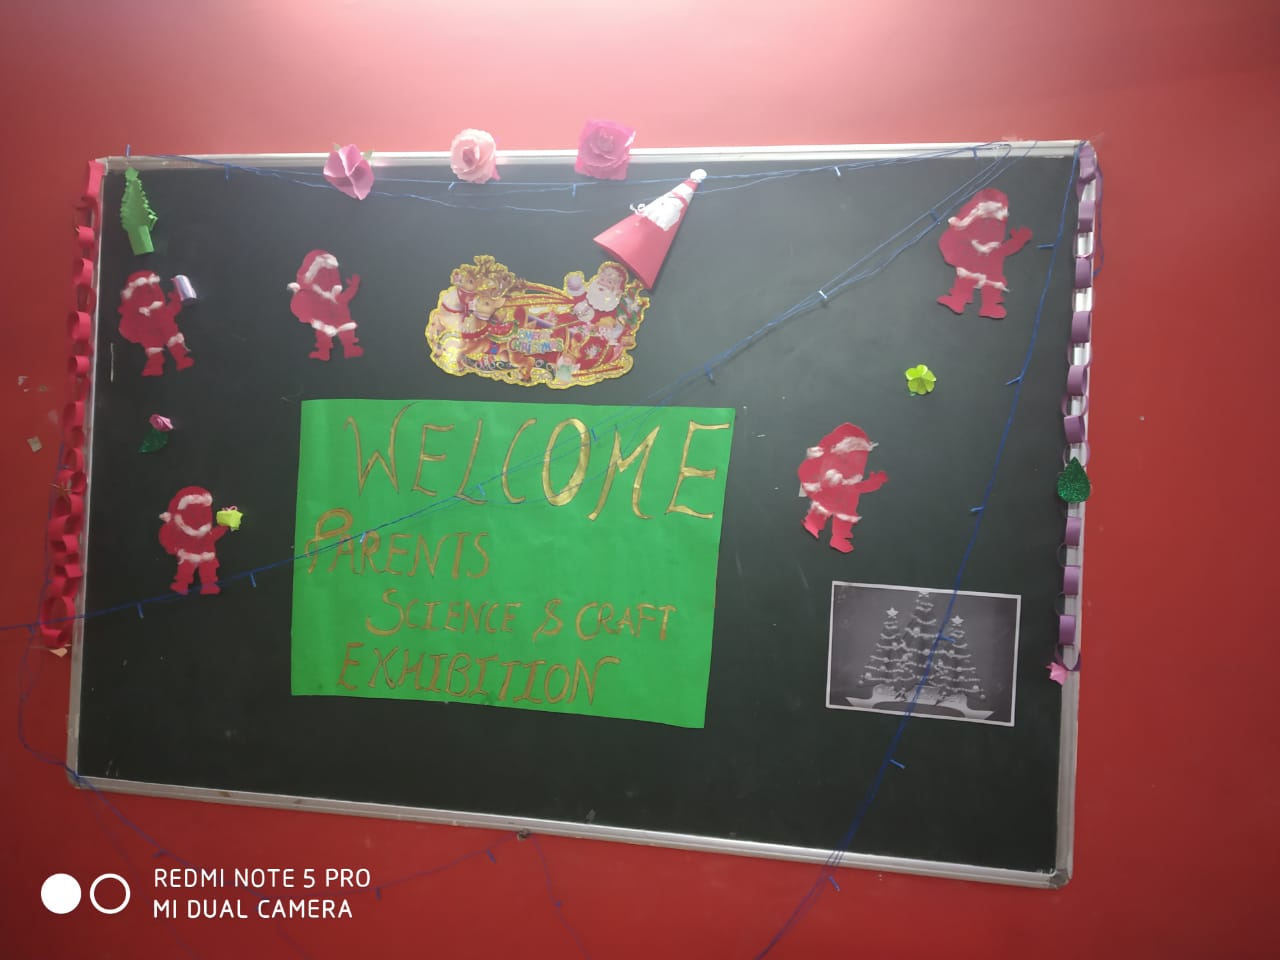 MERRY CHRISTMAS
WELCOME
PARENTS
SCIENCE & CRAFT
EXHIBITION
REDMI NOTE 5 PRO
MI DUAL CAMERA